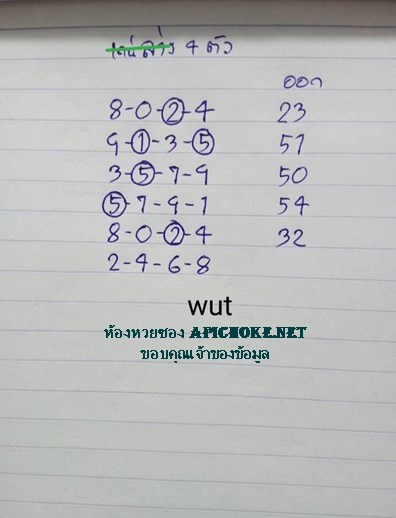 เด่นล่าง 4 ตัว
ออก
8-0-2-4 23
9-1-3-5 51
3-5-7-9 50
5-7-9-1 54
8-0-2-4 32
2-4-6-8
wut
ห้องหวยซอง APICHOKE.NET
ขอบคุณเจ้าของข้อมูล